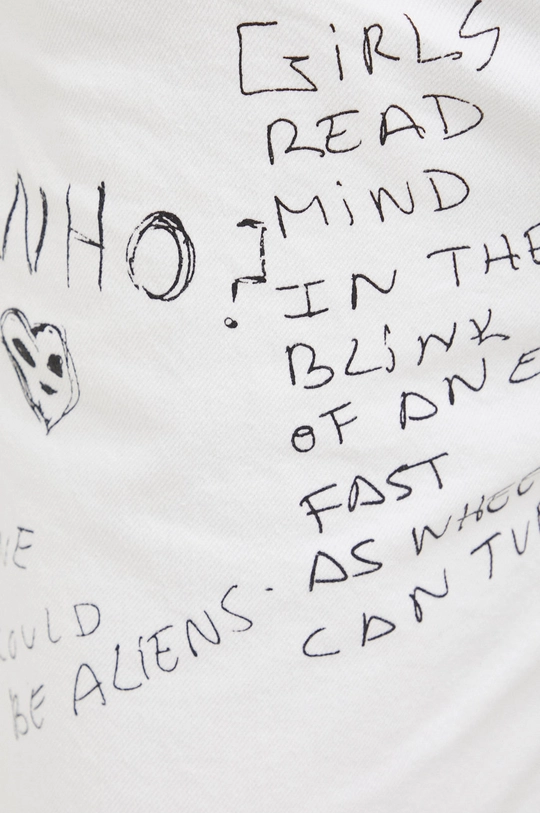 GiRLS
READ
MiND
IN THE
BLiNK
OF AN E
FAST
AS WHEE
CAN TU
WHO?
OULD
BE ALIENS.